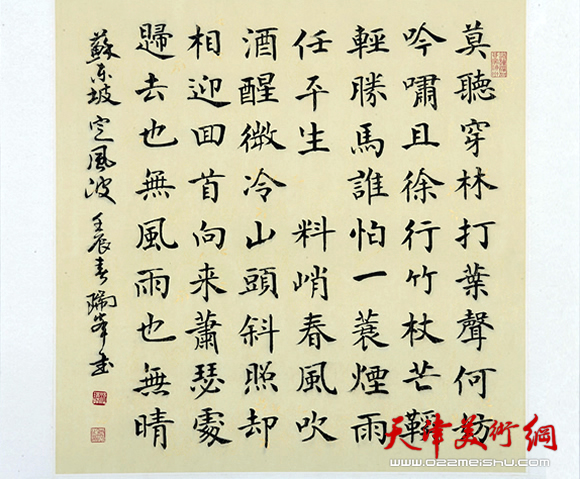 莫聽穿林打葉聲何妨
吟嘯且徐行竹杖芒鞵
輕勝馬誰怕一蓑煙雨
任平生 料峭春風吹
酒醒微冷山頭斜照却
相迎回首向来蕭瑟處
歸去也無風雨也無晴
蘇东坡定風波 壬辰春瑞峰書
天津美術網
www.022meishu.com